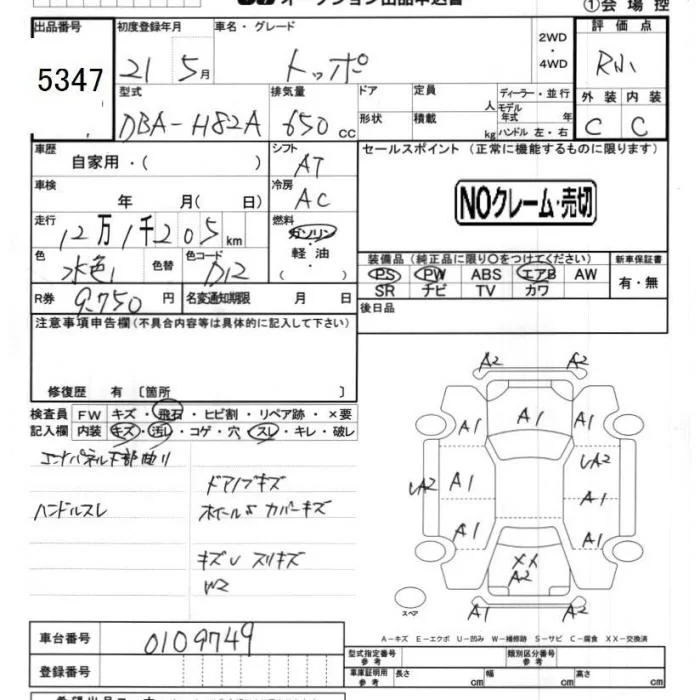 オークション出品申込書
①会場控
出品番号
5347
初度登録年月
21 5月
車名・グレード
トッポ
2WD
・
4WD
評価点
R小
型式
DBA-H82A
排気量
650 cc
ドア
定員
人
ディーラー・並行
モデル年式 年
形状
積載
kg
ハンドル 左・右
外装 内装
C C
車歴
自家用・( )
シフト
AT
セールスポイント (正常に機能するものに限ります)
車検
年 月( 日)
冷房
AC
NOクレーム・売切
走行
12万1千205km
燃料
ガソリン
軽油
・( )
色
水色
色替
色コード
D12
装備品 (純正品に限り○をつけてください)
PS PW ABS エアB AW
SR ナビ TV カワ
新車保証書
有・無
R券
9,750円
名変通知期限 月 日
後日品
注意事項申告欄(不具合内容等は具体的に記入して下さい)
修復歴 有 〔箇所 〕
検査員記入欄
FW キズ・飛石・ヒビ割・リペア跡・×要
内装 キズ・汚レ・コゲ・穴・スレ・キレ・破レ
エンドパネル下部曲り
ドアノブキズ
ハンドルスレ
ホイールカバーキズ
キズU スリキズ
W2
A2 A2
A1 A1 A1
UA2
UA2 A1 A1
A1 A1
XX
A2
A1 A2
スペア
A-キズ E-エクボ U-凹み W-補修跡 S-サビ C-腐食 XX-交換済
車台番号
0109749
型式指定番号
参考
類別区分番号
参考
登録番号
車庫証明用
参考
長さ cm
幅 cm
高さ cm
希望出品コーナー